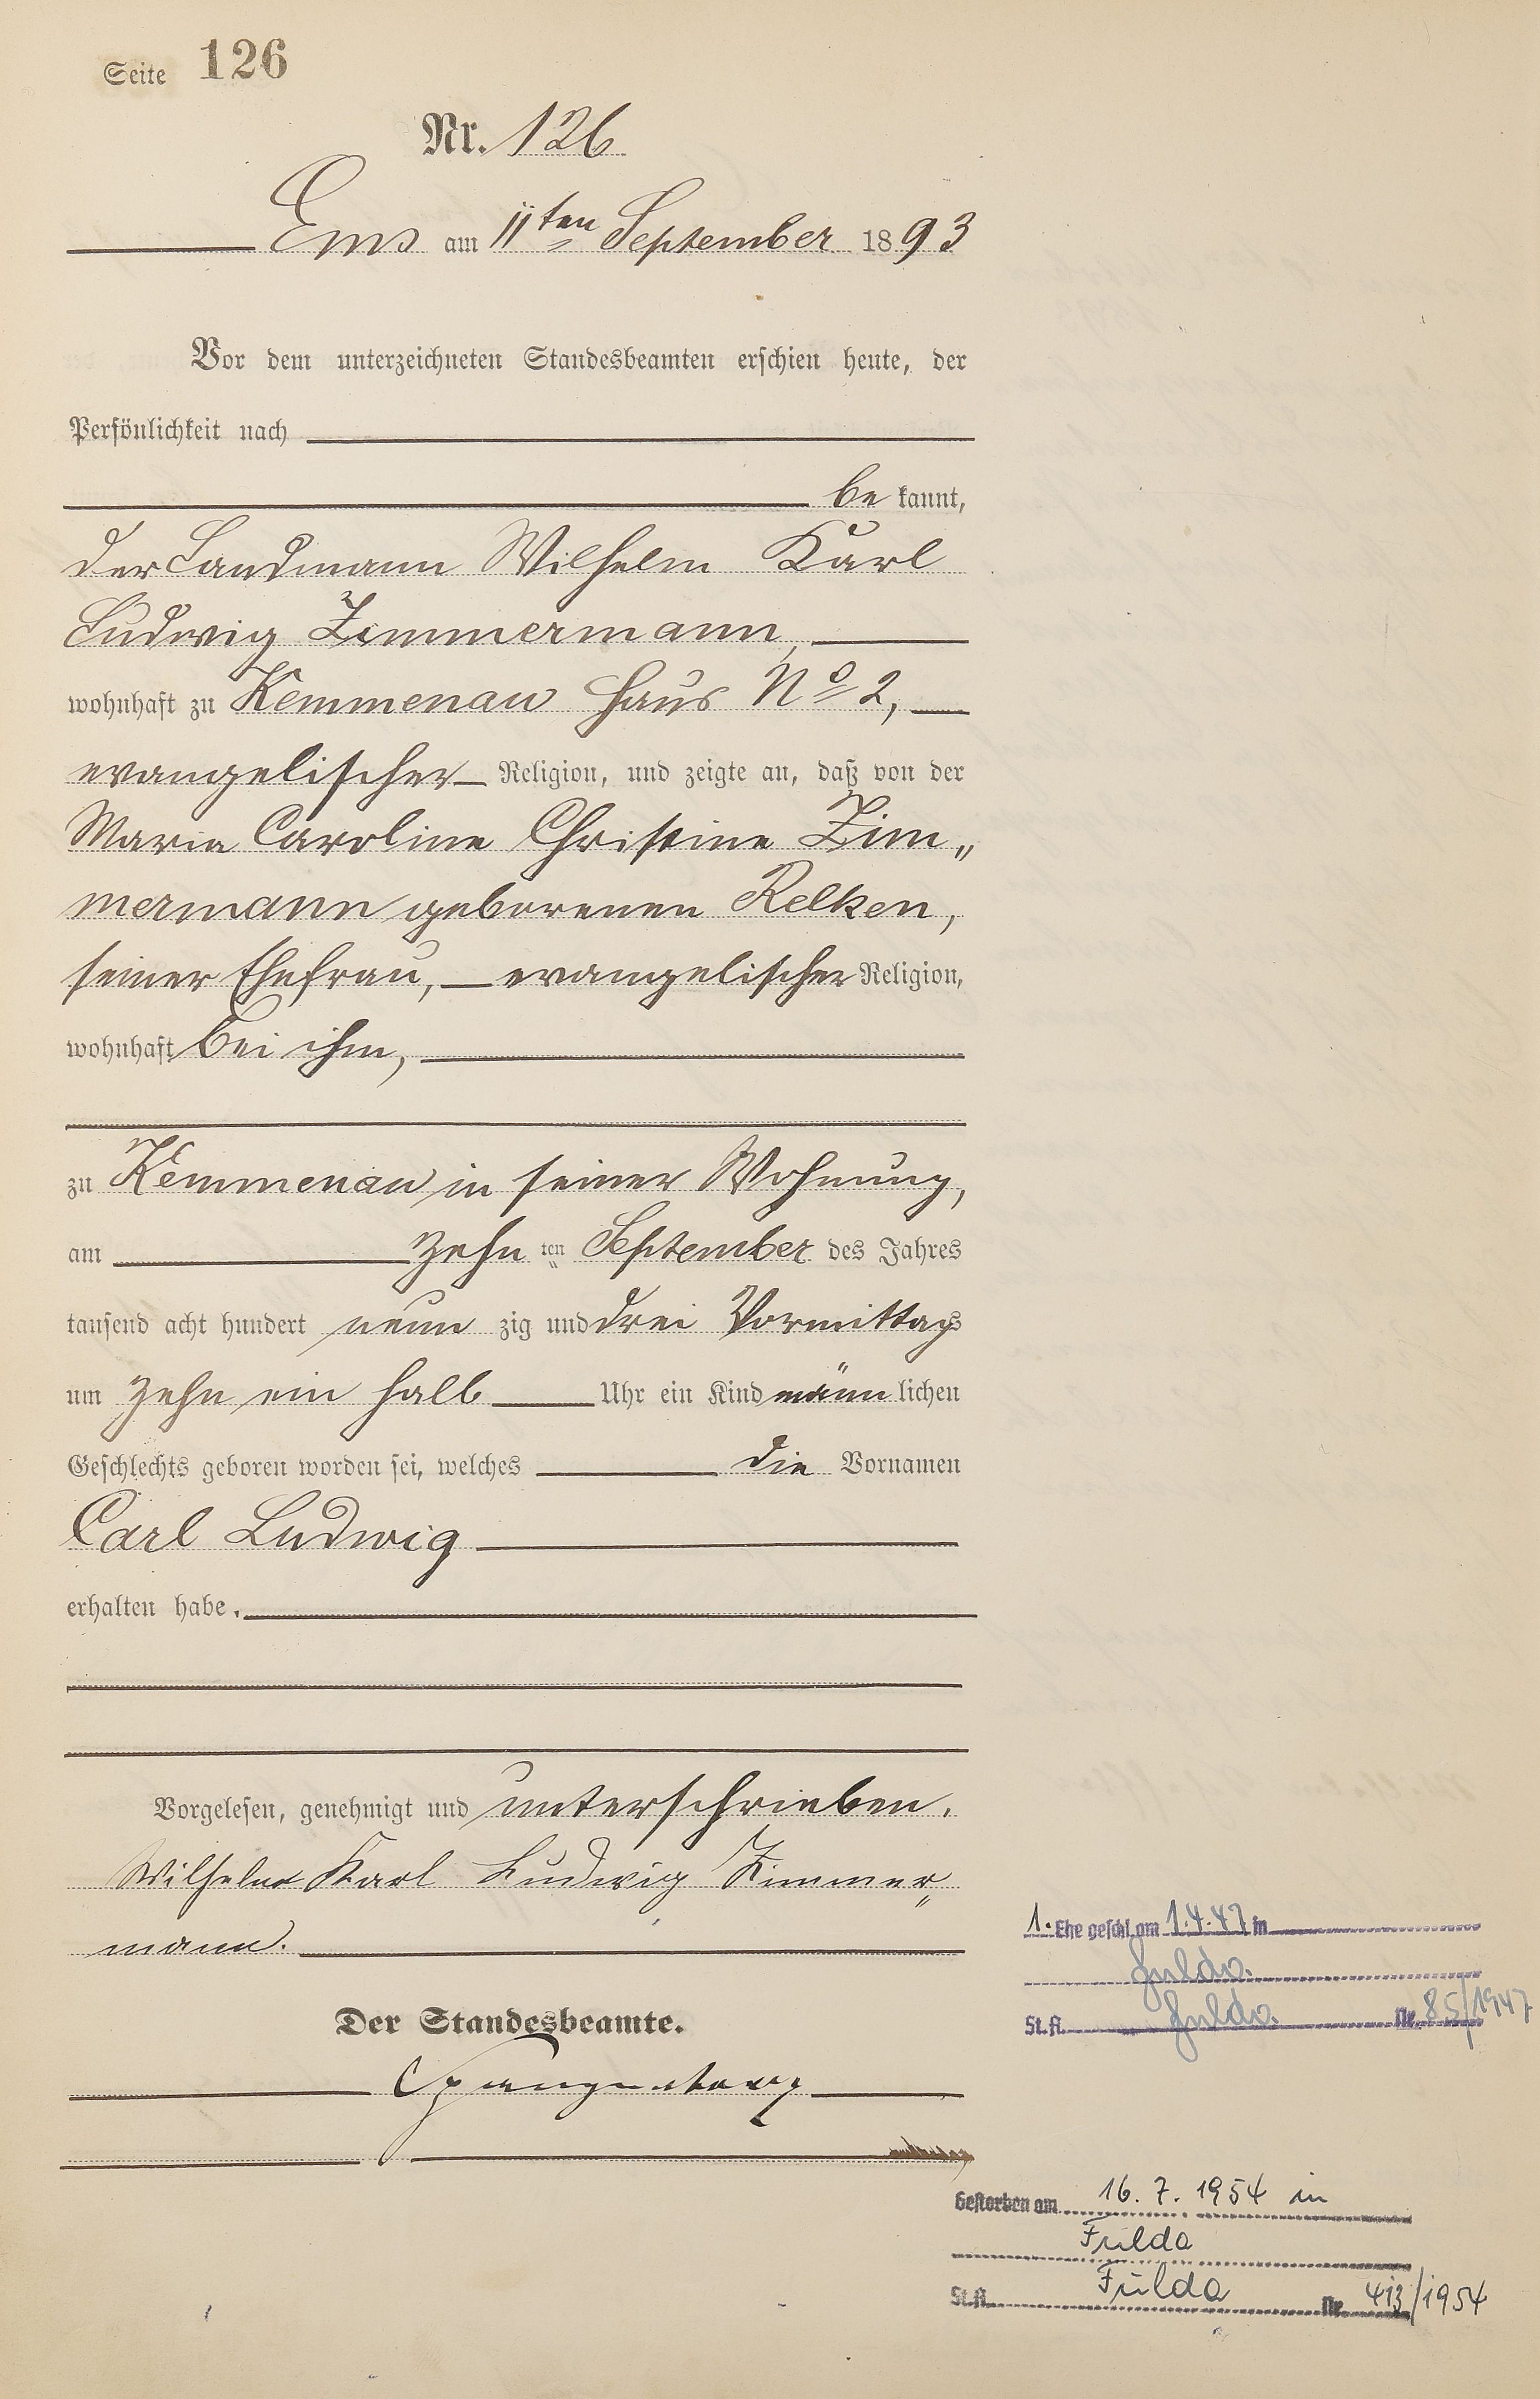 Seite 126
Nr. 126
Ems am 11ten September 1893
Vor dem unterzeichneten Standesbeamten erschien heute, der
Persönlichkeit nach
be kannt,
der Landmann Wilhelm Karl
Ludwig Zimmermann,
wohnhaft zu Kemmenau Haus No 2,
evangelischer Religion, und zeigte an, daß von der
Maria Caroline Christine Zim„
mermann geborenen Relken,
seiner Ehefrau, evangelischer Religion,
wohnhaft bei ihm,
zu Kemmenau in seiner Wohnung,
am zehn ten September des Jahres
tausend acht hundert neun zig und drei Vormittags
um zehn ein halb Uhr ein Kind männ lichen
Geschlechts geboren worden sei, welches die Vornamen
Carl Ludwig
erhalten habe.
Vorgelesen, genehmigt und unterschrieben.
Wilhelm Karl Ludwig Zimmer„
mann.
Der Standesbeamte.
1. Ehe geschl. am 1.4.47 in
Fulda.
St.A. Fulda. Nr. 85/1947
Gestorben am 16. 7. 1954 in
Fulda
St.A. Fulda Nr. 413/1954